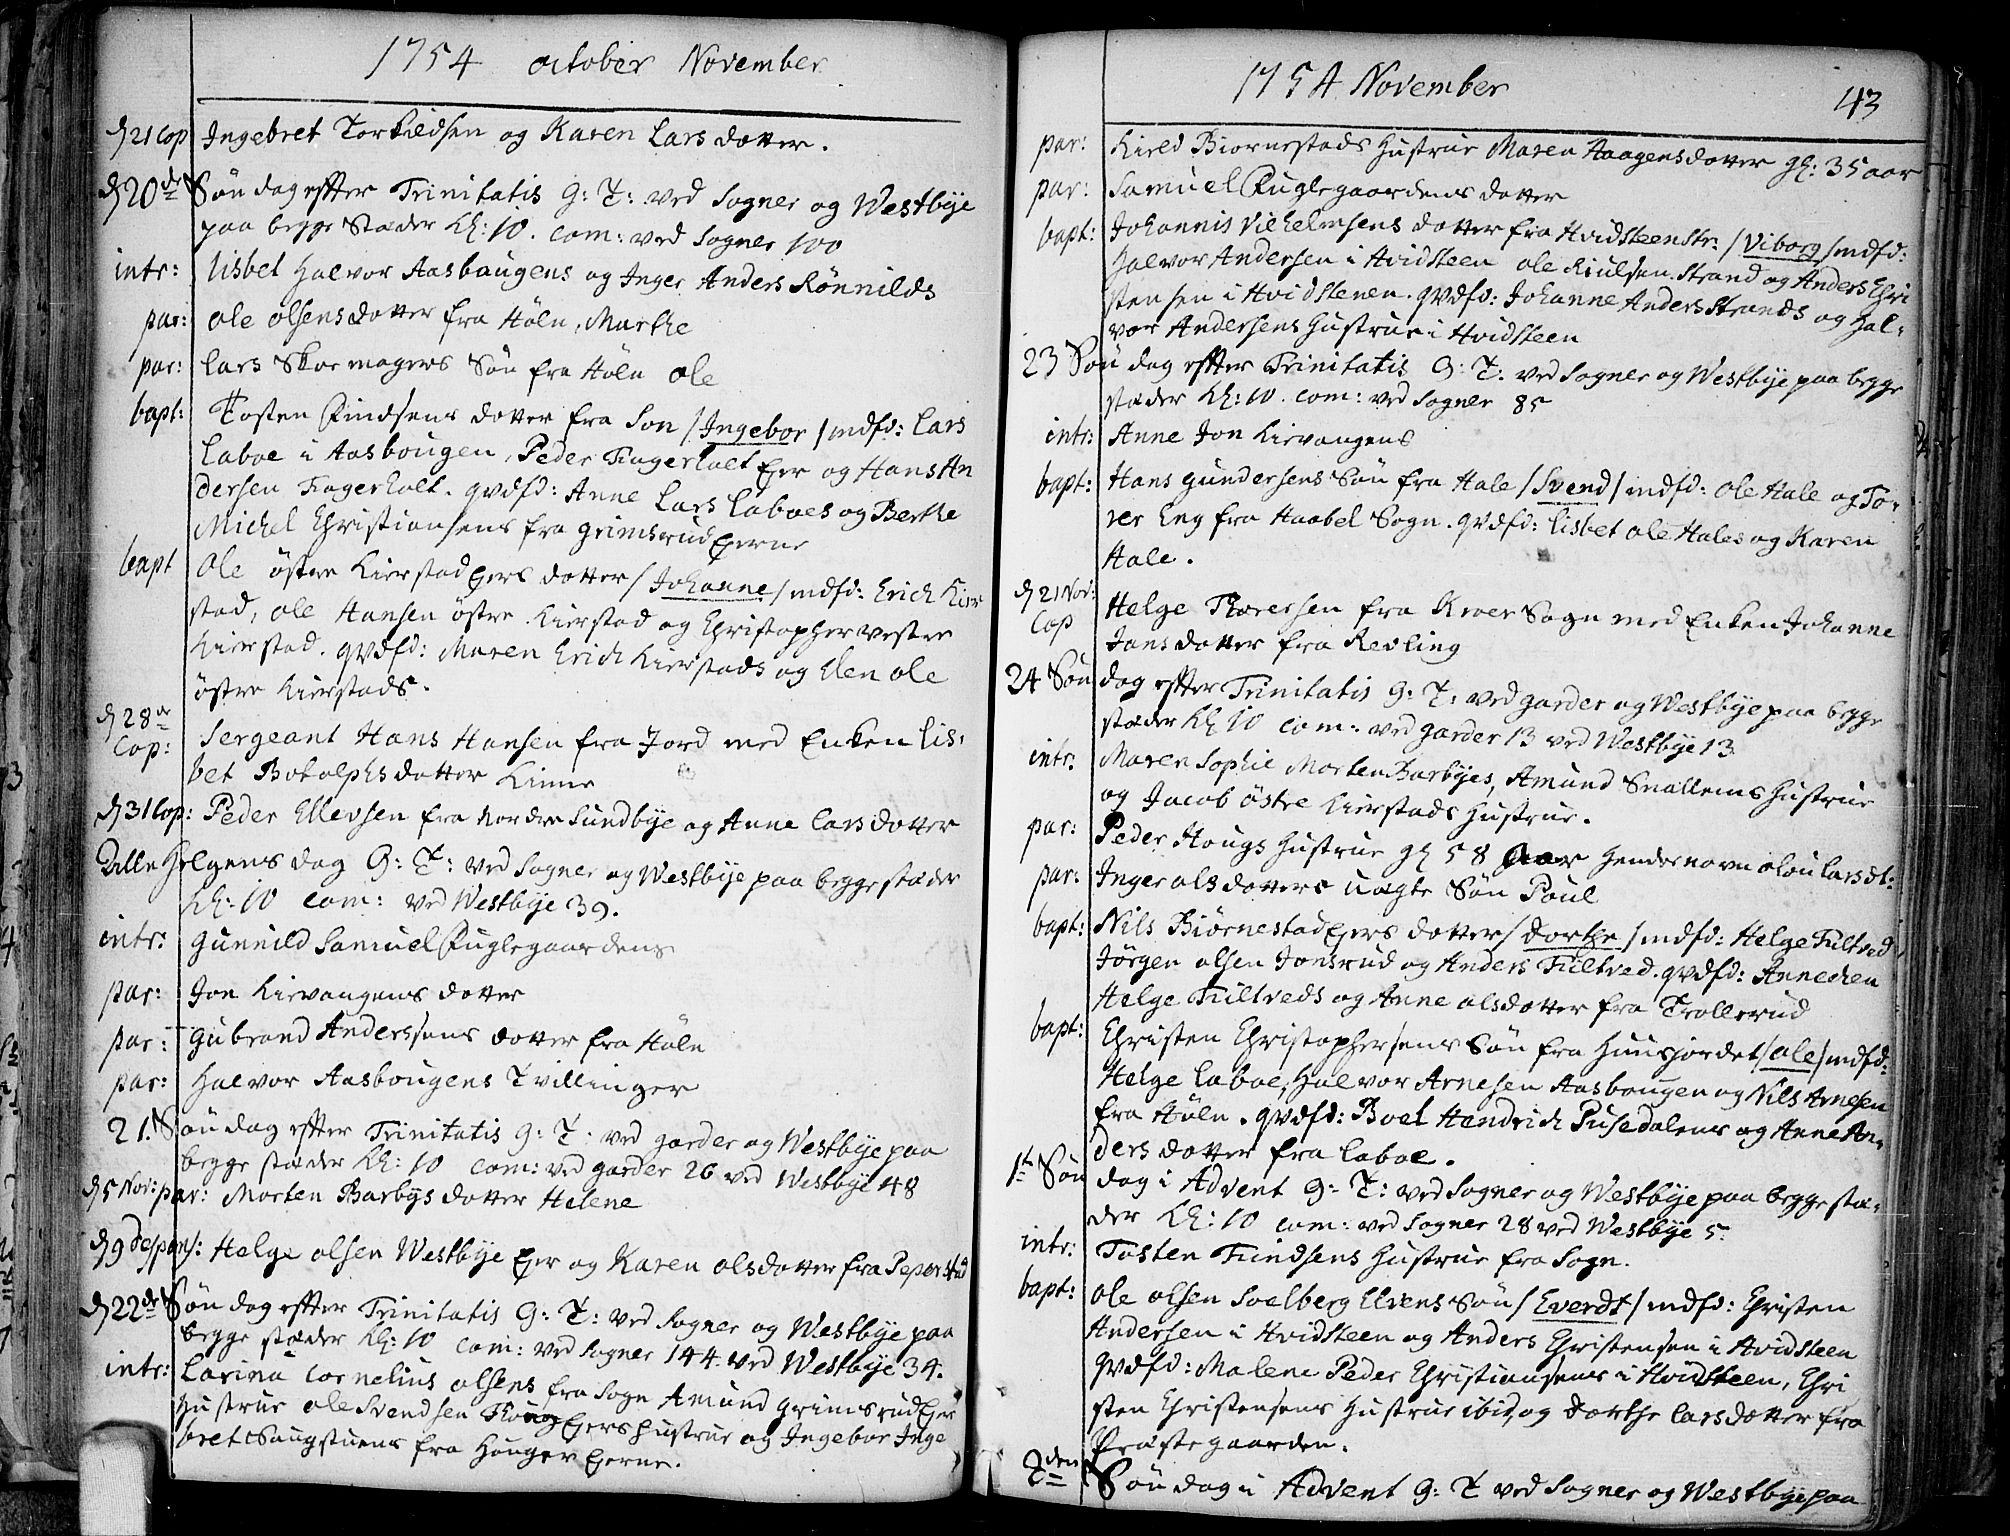 1754 october November
d 21 Cop Ingebret Torkildsen og Karen Lars dotter.
d 20de Søndag effter Trinitatis G: T: ved Sogner og Westbye
paa begge Stæder Kl: 10. Com: ved Sogner 100
intr: Lisbet Halvor Aasbaugens og Inger Anders Rønnilds
par: Ole Olsens dotter fra Høln, Marthe
par: Lars Skoemagers Søn fra Høln Ole
bapt: Tosten Findsens dotter fra Son /Ingebor/ mdfd: Lars
Laboe i Aasbougen, Peder Fingerholt Ejer og Hans An
dersen Fingerholt. qvdfd: Anne Lars Laboes og Berthe
Michel Christiansens fra Grimsrud Ejerne
bapt Ole østre Kierstad Ejers dotter /Johanne/ mdfd: Erich Kier
stad, Ole Hansen østre Kierstad og Christopher vestre
Kierstad. qvdfd: Maren Erich Kierstads og Elen Ole
østre Kierstads.
d 28de Sergeant Hans Hansen fra Jord med Enken Lis-
Cop: bet Botolphs dotter Kinne
d 31 Cop: Peder Ellevsen fra Nordre Sundbye og Anne Lars dotter
Dalle Helgens dag G: T: ved Sogner og Westbye paa begge stæder
Kl: 10 Com: ved Westbye 39.
intr: Gunnild Samuel Fuglegaardens
par: Jon Kirvangens dotter
par: Gubrand Anderssens dotter fra Høln
par: Halvor Aasbougens Tvillinger
21. Søndag effter Trinitatis G: T: ved Garder og Westbye paa
begge stæder Kl: 10 Com: ved Garder 26 ved Westbye 48
d 5 Nov: par: Morten Barbys dotter Helene
d 9 despons: Helge Olsen Westbye Ejer og Karen Olsdotter fra Peperstad
d 22de Søndag effter Trinitatis G: T: ved Sogner og Westbye paa
begge stæder Kl: 10 Com: ved Sogner 144. ved Westbye 34.
intr: Larina Cornelius Olsens fra Sogn Amund Grimsrud Ejer
Hustrue Ole Svendsen Thoug Ejers Hustrue og Ingebor Inge
bret Saugstuens fra Houger Ejerne.
1754 November 43
par: Kield Biørnestads Hustrue Maren Aagensdotter gl: 35 aar
par: Samuel Fuglegaardens dotter
bapt: Johannis Vilhelmsens dotter fra Hvidsteenstr: /Viborg/ mdfd:
Halvor Andersen i Hvidsteen Ole Kiulsen Strand og Anders Chri
stensen i Hvidstenen. qvdfd: Johanne Anders Strands og Hal-
vor Andersens Hustrue i Hvidsteen
23 Søndag effter Trinitatis G: T. ved Sogner og Westbye paa begge
stæder Kl: 10. Com: ved Sogner 85
intr: Anne Jon Kirvangens
bapt: Hans Gundersens Søn fra Hale /Svend/ mdfd: Ole Hale og To-
rer Eng fra Haabel Sogn. qvdfd: Lisbet Ole Hales og Karen
Hale.
d 21 Nov: Helge Thoresen fra Kroer Sogn med Enken Johanne
Cop Jans dotter fra Revling
24 Søndag effter Trinitatis G: T: ved Garder og Westbye paa begge
stæder Kl 10 Com: ved Garder 13 ved Westbye 13
intr. Maren Sophie Morten Barbyes, Amund Snallems Hustrue
og Jacob østre Kierstads Hustrue.
par: Peder Hougs Hustrue gl 58 Aar Hendes navn Olou Larsdt:
par: Inger Olsdotters uægte Søn Poul
bapt: Nils Biørnestad Ejers dotter /Dorthe/ mdfd: Helge Fultved
Jørgen Olsen Jonsrud og Anders Fultved. qvdfd: Annechen
Helge Fultveds og Anne Olsdotter fra Trollerud
bapt: Christen Christophersens Søn fra Huusjordet /Ole/ mdfd:
Helge Laboe, Halvor Arnesen Aasbougen og Nils Arnesen
fra Høln. qvdfd: Boel Hendrich Pusedalens og Anne An-
ders dotter fra Laboe.
1te Søndag i Advent G: T: ved Sogner og Westbye paa begge stæ-
der Kl: 10 Com: ved Sogner 28 ved Westbye 5.
intr: Tosten Findsens Hustrue fra Sogn.
bapt: Ole Olsen Soelberg Elvens Søn /Everdt/ mdfd: Christen
Andersen i Hvidsteen og Anders Christensen i Hvidsteen
qvdfd: Malene Peder Christiansens i Hvidsteen, Chri
sten Christensens Hustrue ibid, og Dorthe Lars dotter fra
Præstegaarden.
2den Søndag i Advent G: T ved Sogner og Westbye paa